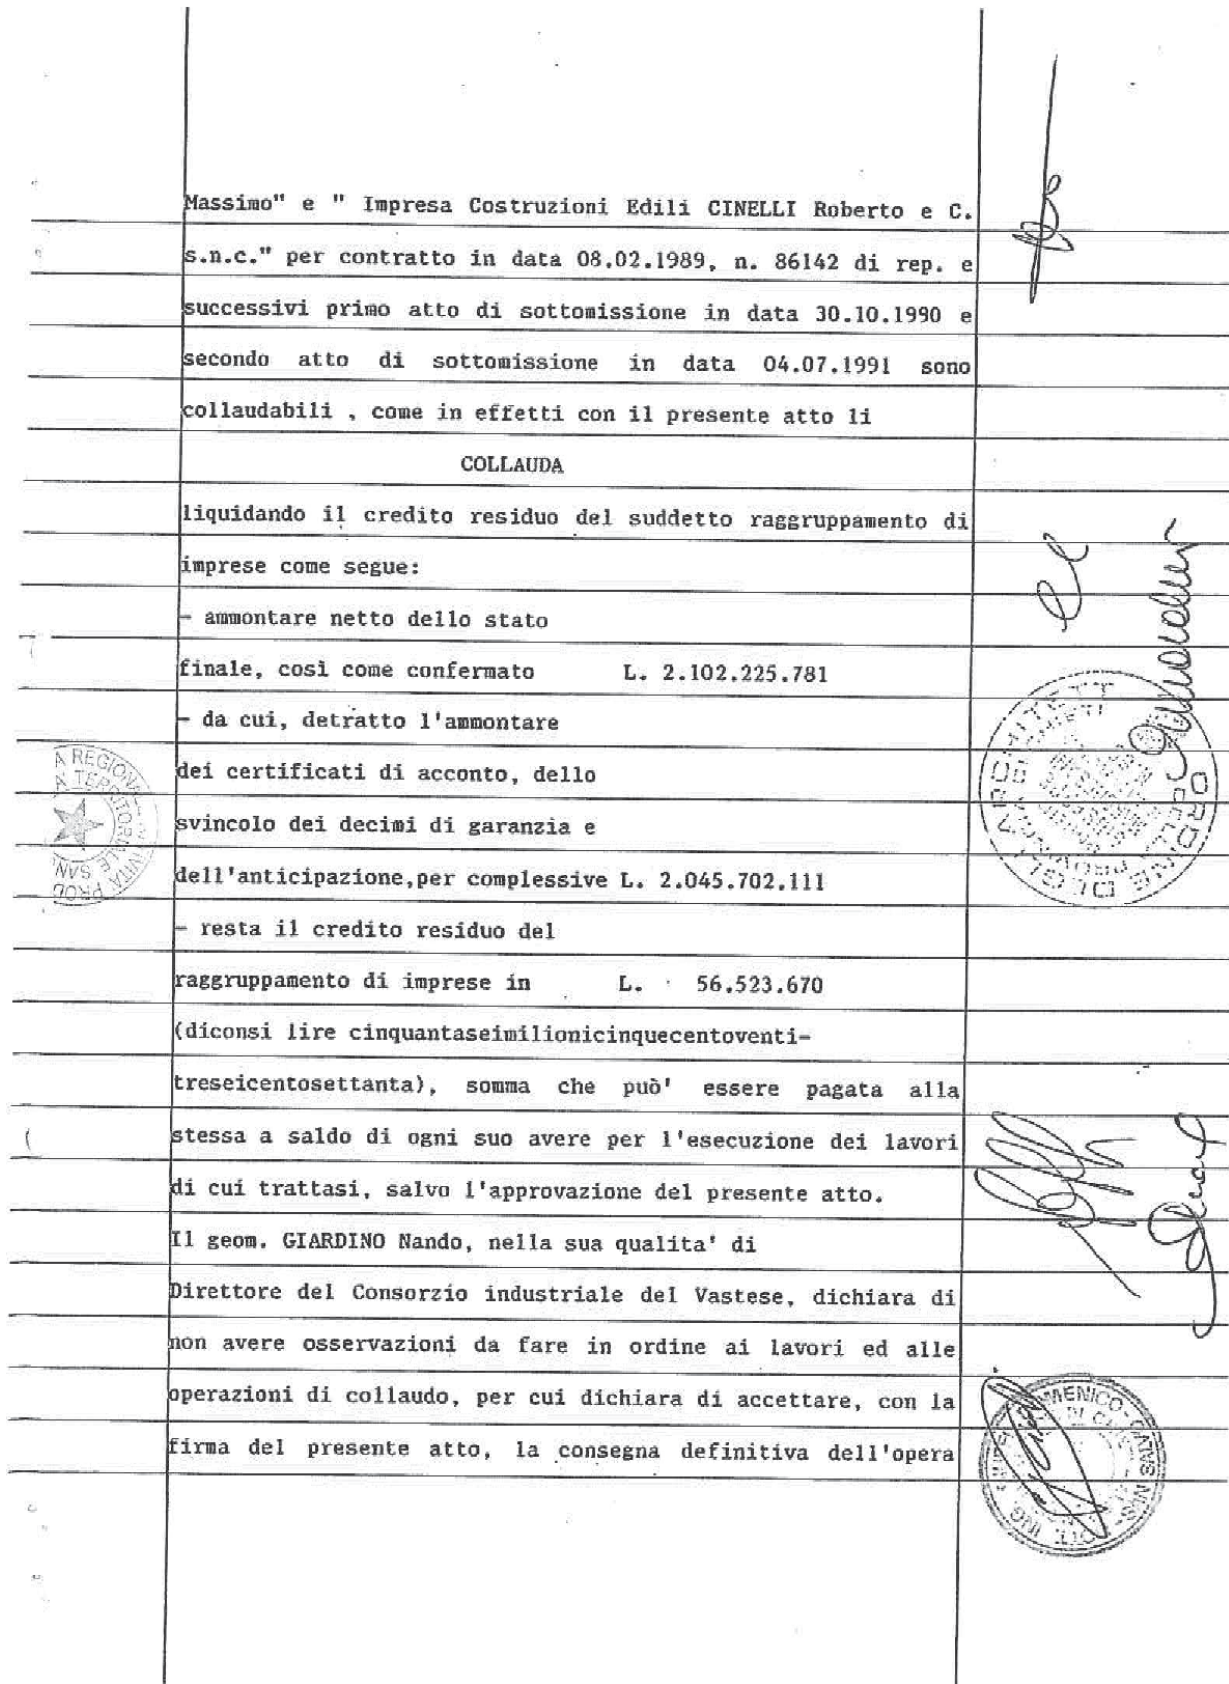 Massimo" e " Impresa Costruzioni Edili CINELLI Roberto e C.
s.n.c." per contratto in data 08.02.1989, n. 86142 di rep. e
successivi primo atto di sottomissione in data 30.10.1990 e
secondo atto di sottomissione in data 04.07.1991 sono
collaudabili , come in effetti con il presente atto li
COLLAUDA
liquidando il credito residuo del suddetto raggruppamento di
imprese come segue:
- ammontare netto dello stato
finale, così come confermato L. 2.102.225.781
- da cui, detratto l'ammontare
dei certificati di acconto, dello
svincolo dei decimi di garanzia e
dell'anticipazione,per complessive L. 2.045.702.111
- resta il credito residuo del
raggruppamento di imprese in L. 56.523.670
(diconsi lire cinquantaseimilionicinquecentoventi-
treseicentosettanta), somma che può' essere pagata alla
stessa a saldo di ogni suo avere per l'esecuzione dei lavori
di cui trattasi, salvo l'approvazione del presente atto.
Il geom. GIARDINO Nando, nella sua qualita' di
Direttore del Consorzio industriale del Vastese, dichiara di
non avere osservazioni da fare in ordine ai lavori ed alle
operazioni di collaudo, per cui dichiara di accettare, con la
firma del presente atto, la consegna definitiva dell'opera
ORDINE DEGLI ARCHITETT